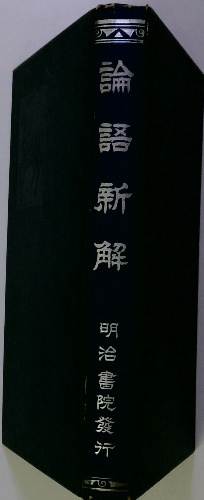 論語新解
明治書院發行